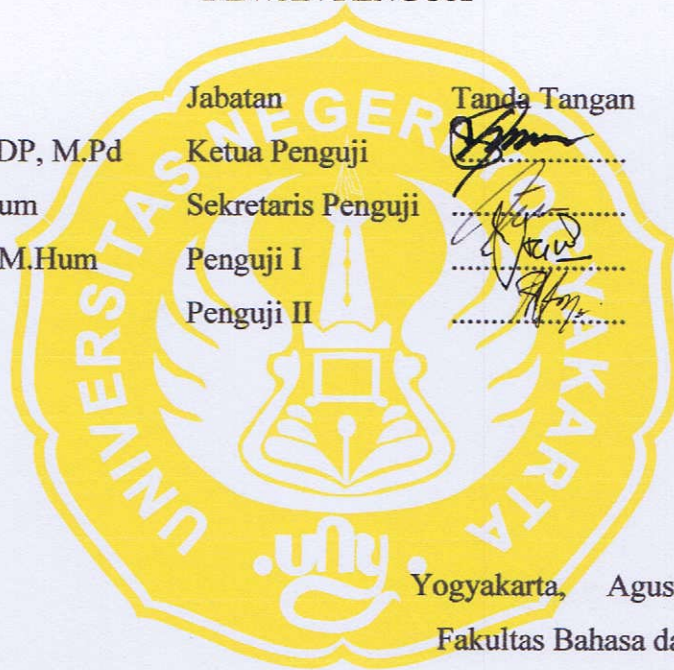 Jabatan Tanda Tangan
DP, M.Pd Ketua Penguji ....................
um Sekretaris Penguji ....................
M.Hum Penguji I ....................
Penguji II ....................
UNIVERSITAS NEGERI YOGYAKARTA
uny
Yogyakarta, Agus
Fakultas Bahasa da